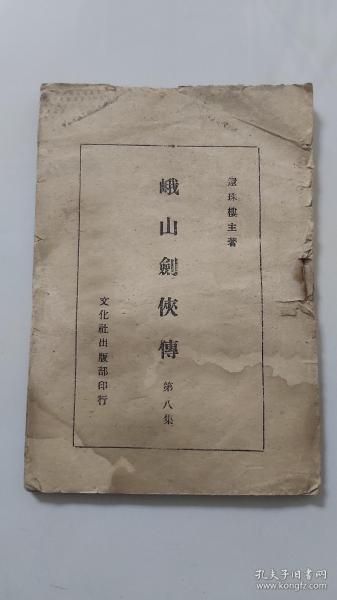 還珠樓主著
峨山劍俠傳
第八集
文化社出版部印行
孔夫子旧书网